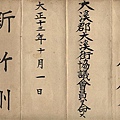 大溪郡大溪街協議會員ヲ命ス
大正十三年十月一日
新竹州